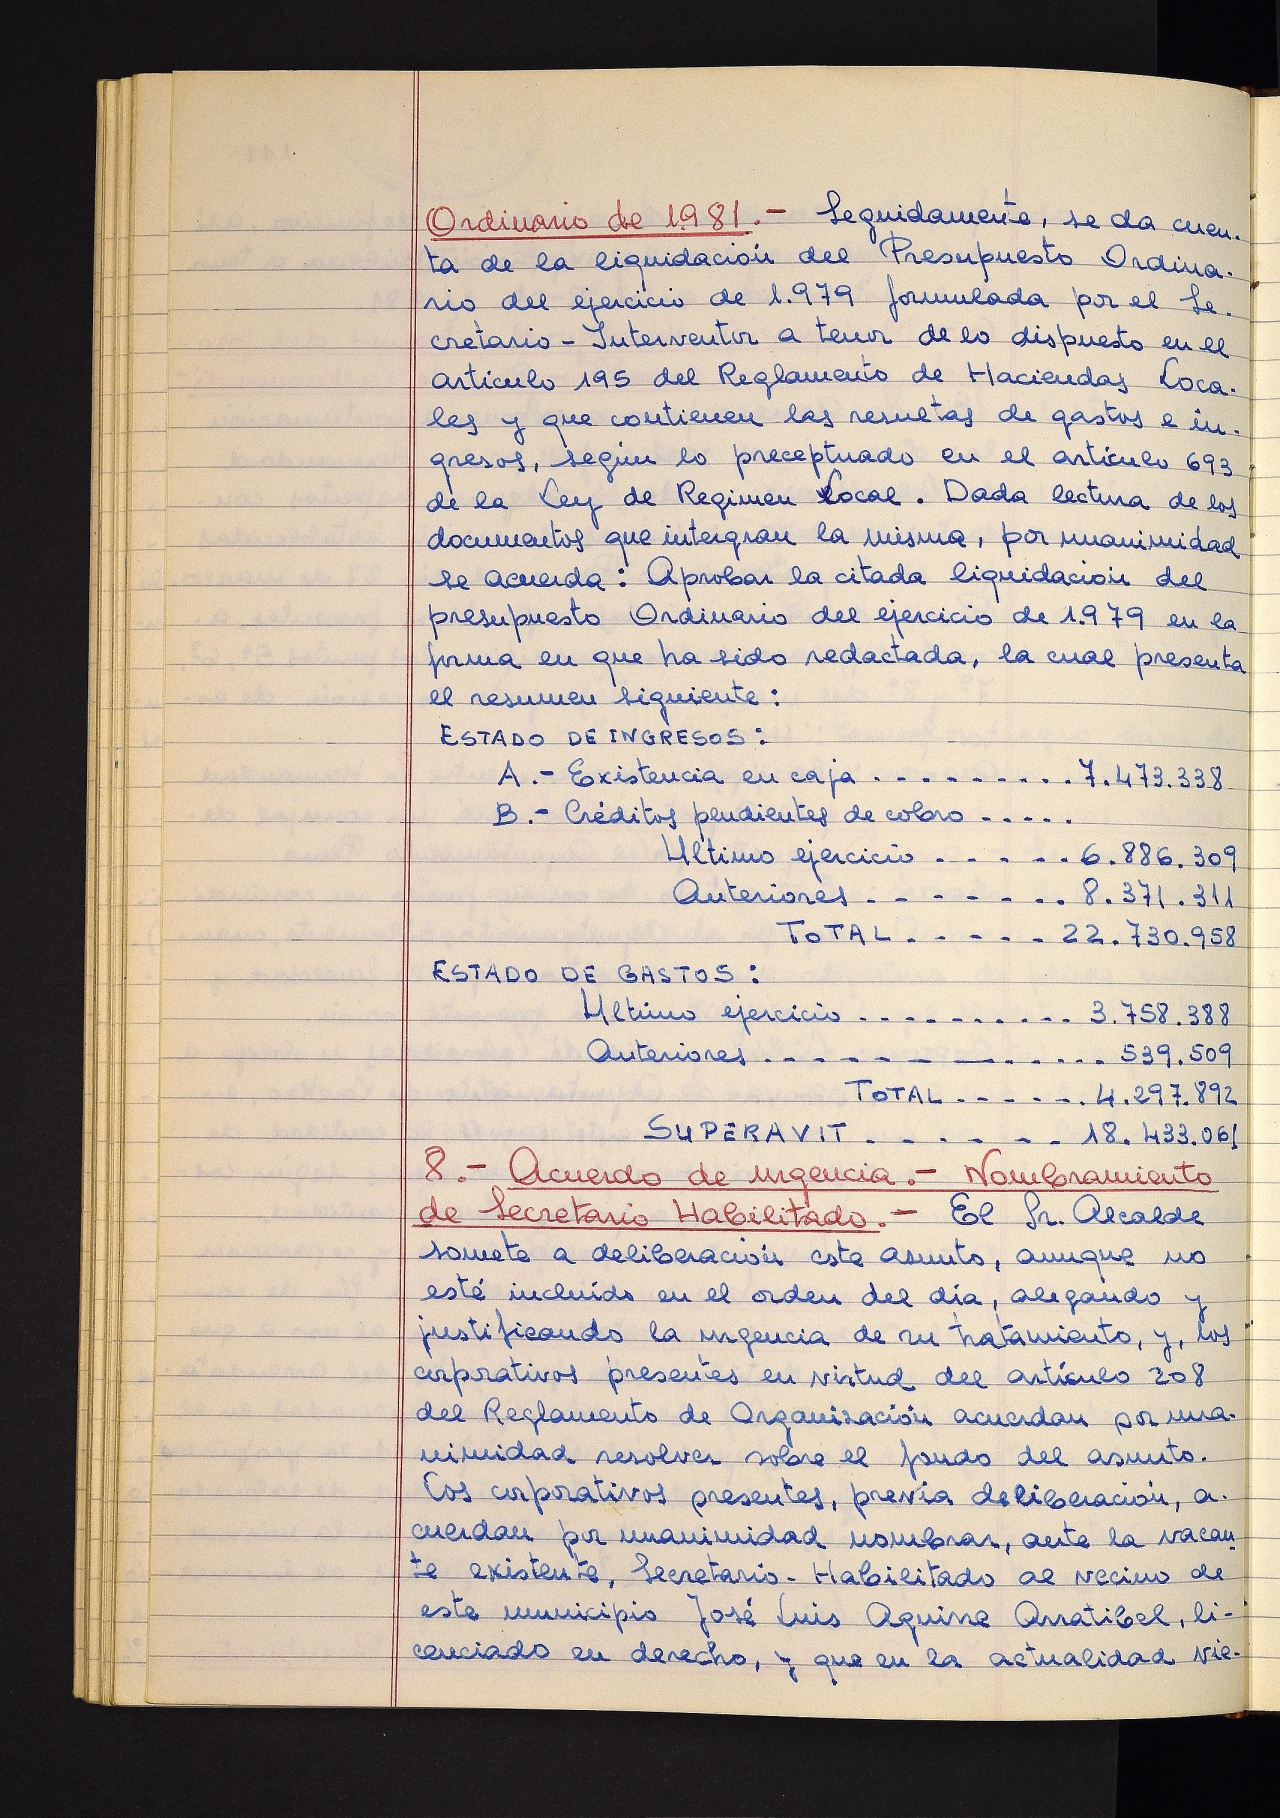 Ordinario de 1.981.- Seguidamente, se da cuen-
ta de la liquidación del Presupuesto Ordina-
rio del ejercicio de 1.979 formulada por el Se-
cretario - Interventor a tenor de lo dispuesto en el
artículo 195 del Reglamento de Haciendas Loca-
les y que contienen las resultas de gastos e in-
gresos, según lo preceptuado en el artículo 693
de la Ley de Regimen Local. Dada lectura de los
documentos que intergran la misma, por unanimidad
se acuerda: Aprobar la citada liquidación del
presupuesto Ordinario del ejercicio de 1.979 en la
forma en que ha sido redactada, la cual presenta
el resumen siguiente:
ESTADO DE INGRESOS:
A.- Existencia en caja . . . . . . . . . 7.473.338
B.- Créditos pendientes de cobro - - . . .
Ultimo ejercicio - - - - . . 6.886.309
Anteriores - - - - - - . . 8.371.311
TOTAL . - - - - - 22.730.958
ESTADO DE GASTOS:
Ultimo ejercicio - - - - - - - - - - 3.758.388
Anteriores . - - - - - - - - - . . . . 539.509
TOTAL - - - - - . 4.297.892
SUPERAVIT - - - - - - 18.433.061
8.- Acuerdo de urgencia.- Nombramiento
de Secretario Habilitado.- El Sr. Alcalde
somete a deliberación este asunto, aunque no
esté incluído en el orden del día, alegando y
justificando la urgencia de su tratamiento, y, los
corporativos presentes en virtud del artículo 208
del Reglamento de Organización acuerdan por una-
nimidad resolver sobre el fondo del asunto.
Los corporativos presentes, previa deliberación, a-
cuerdan por unanimidad nombrar, ante la vacan
te existente, Secretario - Habilitado al vecino de
este municipio José Luis Aguirre Arratibel, li-
cenciado en derecho, y que en la actualidad vie-